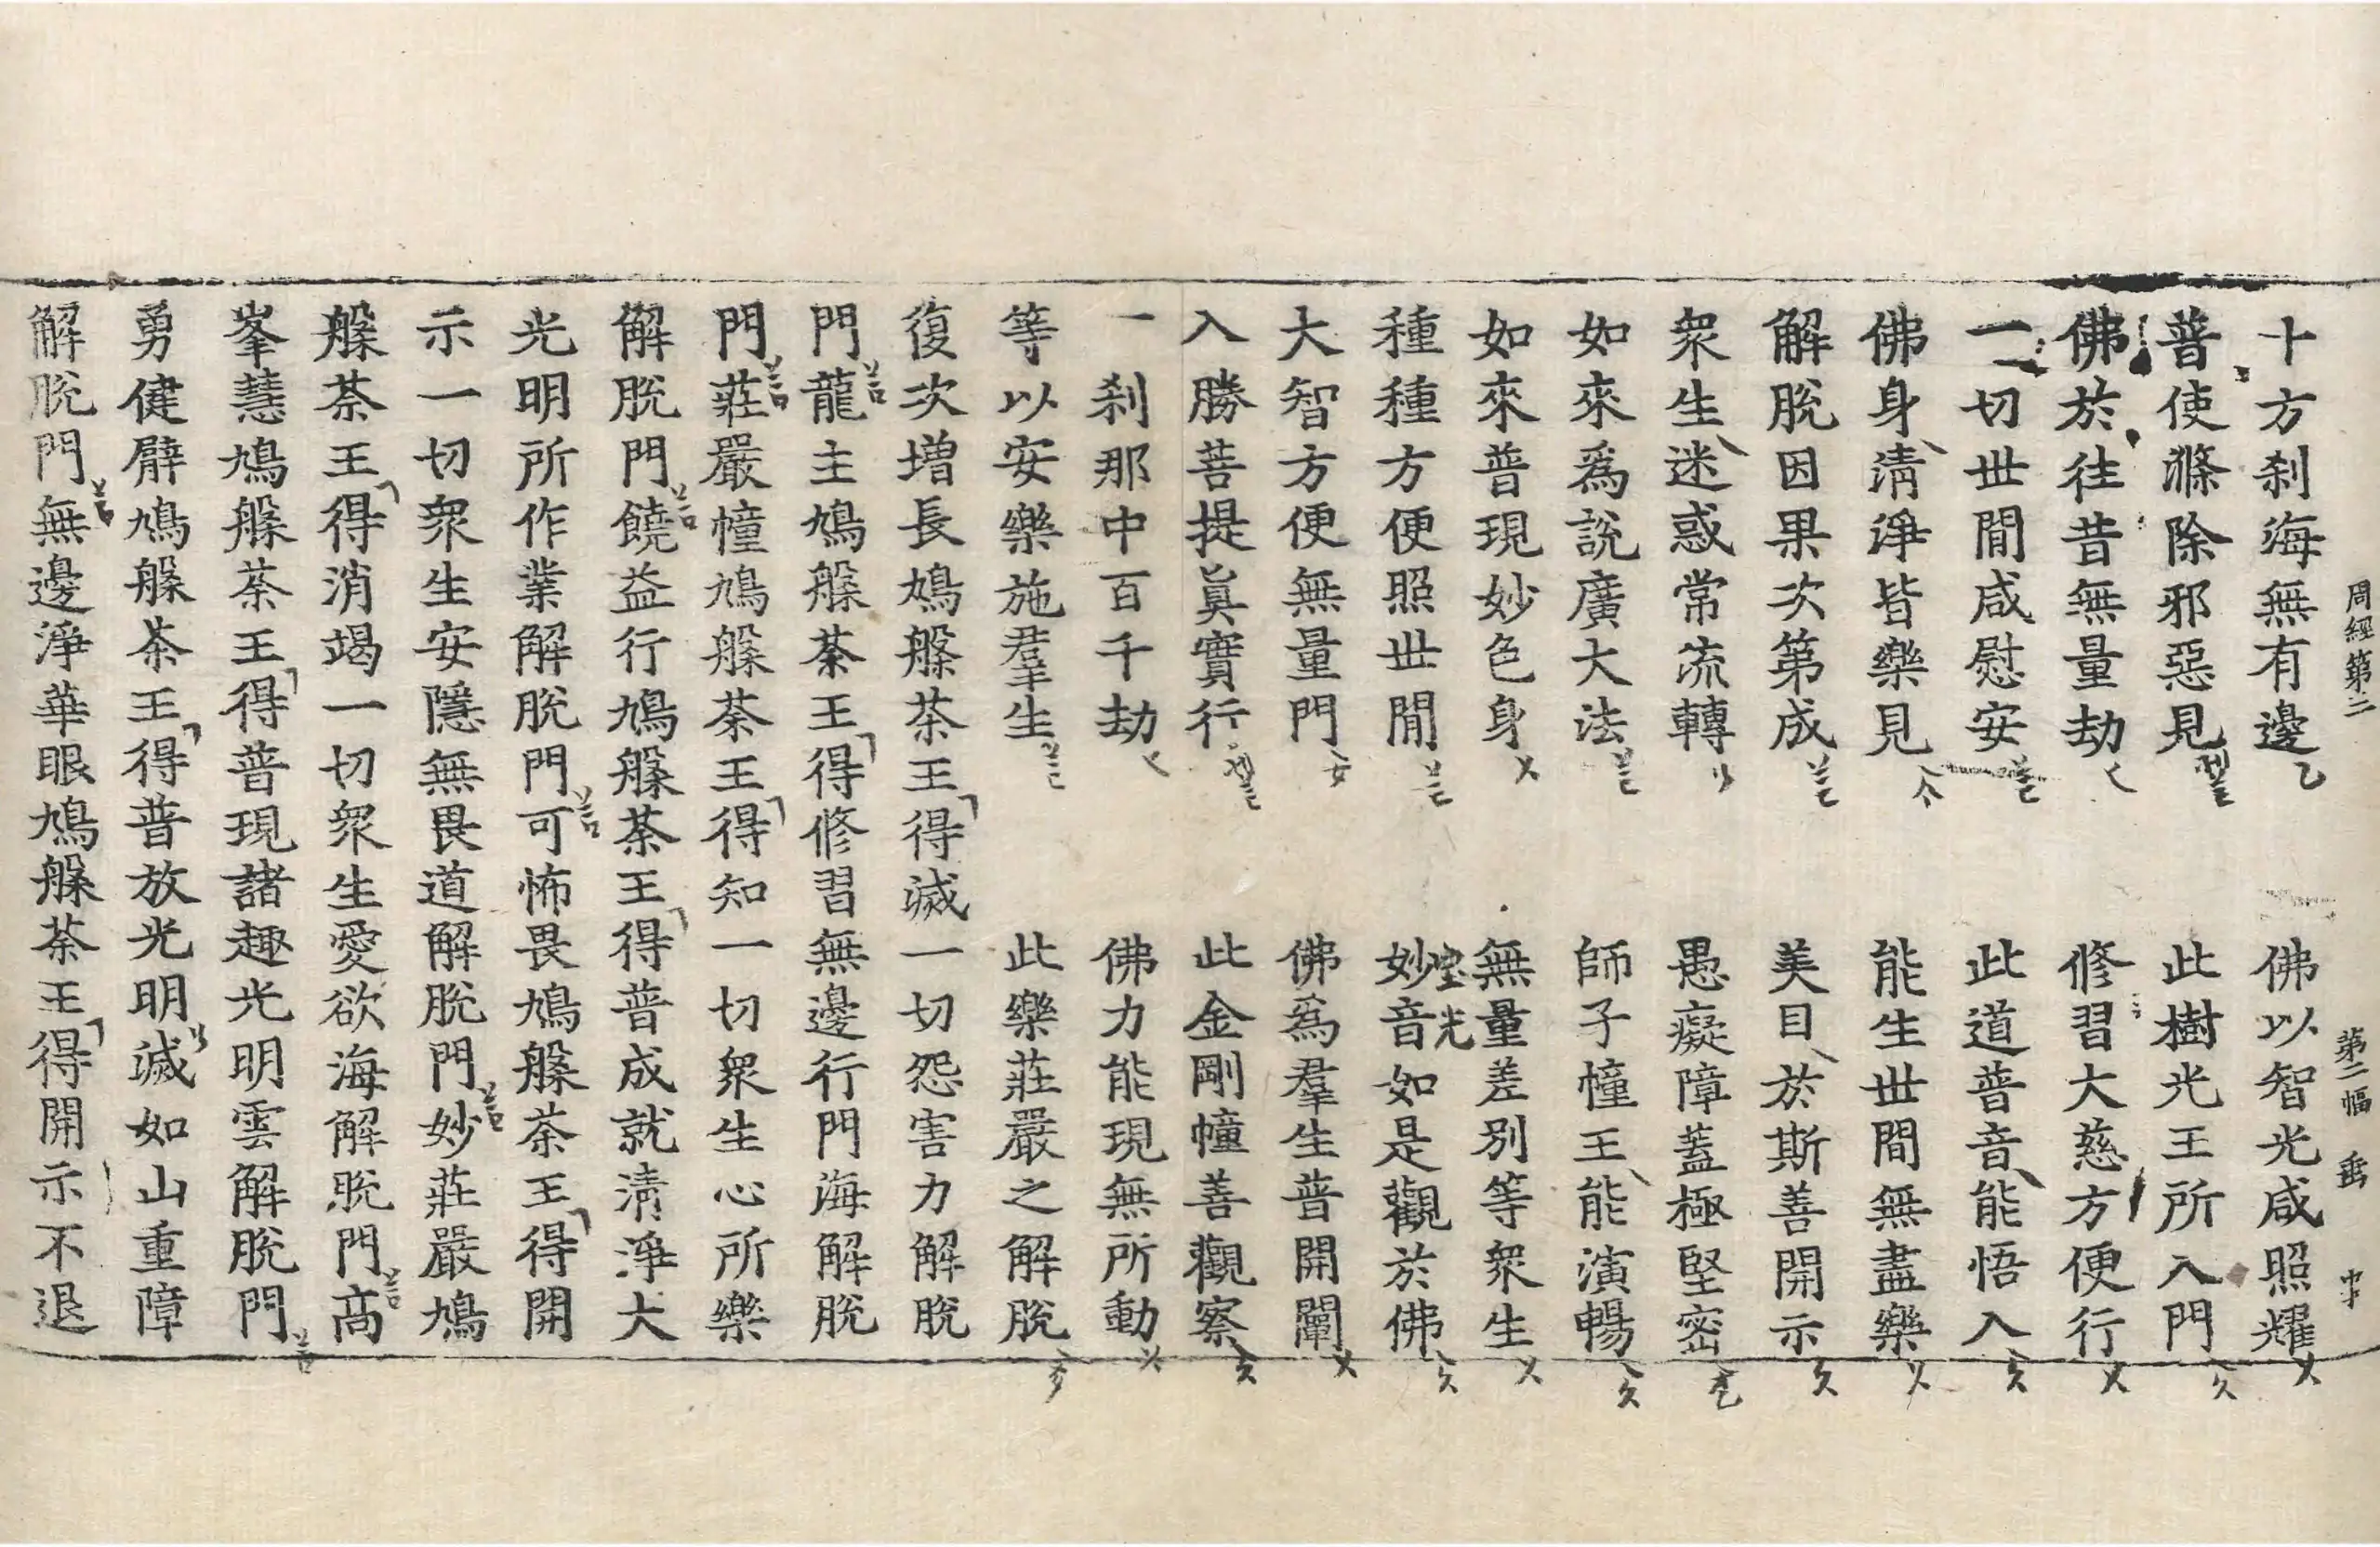 周經第二 第二幅 岳 中
十方刹海無有邊 佛以智光咸照耀
普使滌除邪惡見 此樹光王所入門
佛於往昔無量劫 修習大慈方便行
一切世間咸慰安 此道普音能悟入
佛身淸淨皆樂見 能生世間無盡樂
解脫因果次第成 美目於斯善開示
衆生迷惑常流轉 愚癡障蓋極堅密
如來爲說廣大法 師子幢王能演暢
如來普現妙色身 無量差別等衆生
種種方便照世間 妙音如是觀於佛
大智方便無量門 佛爲羣生普開闡
入勝菩提眞實行 此金剛幢善觀察
一刹那中百千劫 佛力能現無所動
等以安樂施羣生 此樂莊嚴之解脫
復次增長鳩槃荼王得滅一切怨害力解脫
門龍主鳩槃荼王得修習無邊行門海解脫
門莊嚴幢鳩槃荼王得知一切衆生心所樂
解脫門饒益行鳩槃荼王得普成就淸淨大
光明所作業解脫門可怖畏鳩槃荼王得開
示一切衆生安隱無畏道解脫門妙莊嚴鳩
槃荼王得消竭一切衆生愛欲海解脫門高
峯慧鳩槃荼王得普現諸趣光明雲解脫門
勇健臂鳩槃荼王得普放光明滅如山重障
解脫門無邊淨華眼鳩槃荼王得開示不退